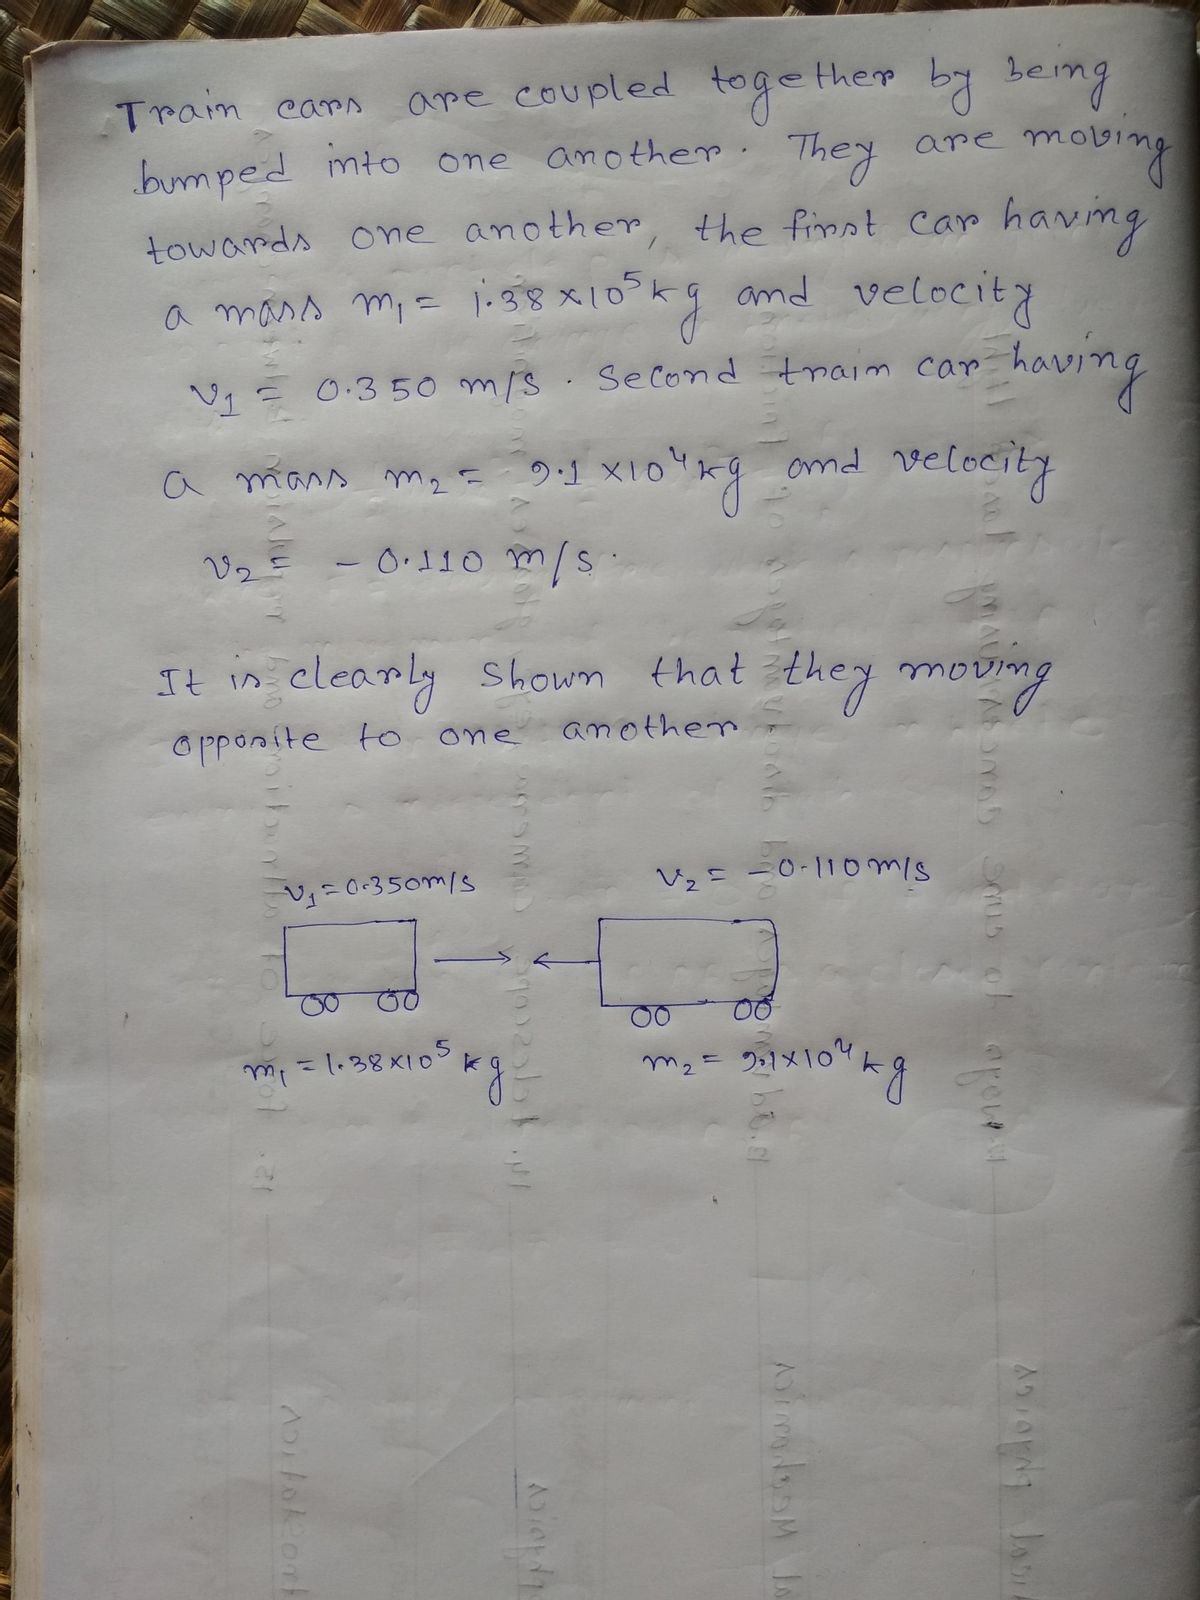 Train cars are coupled together by being
bumped into one another. They are moving
towards one another, the first car having
a mass m₁ = 1.38 × 10⁵ kg and velocity
v₁ = 0.350 m/s. Second train car having
a mass m₂ = 9.1 × 10⁴ kg and velocity
v₂ = - 0.110 m/s.
It is clearly shown that they moving
opposite to one another
v₁ = 0.350 m/s
v₂ = - 0.110 m/s
m₁ = 1.38 × 10⁵ kg
m₂ = 9.1 × 10⁴ kg